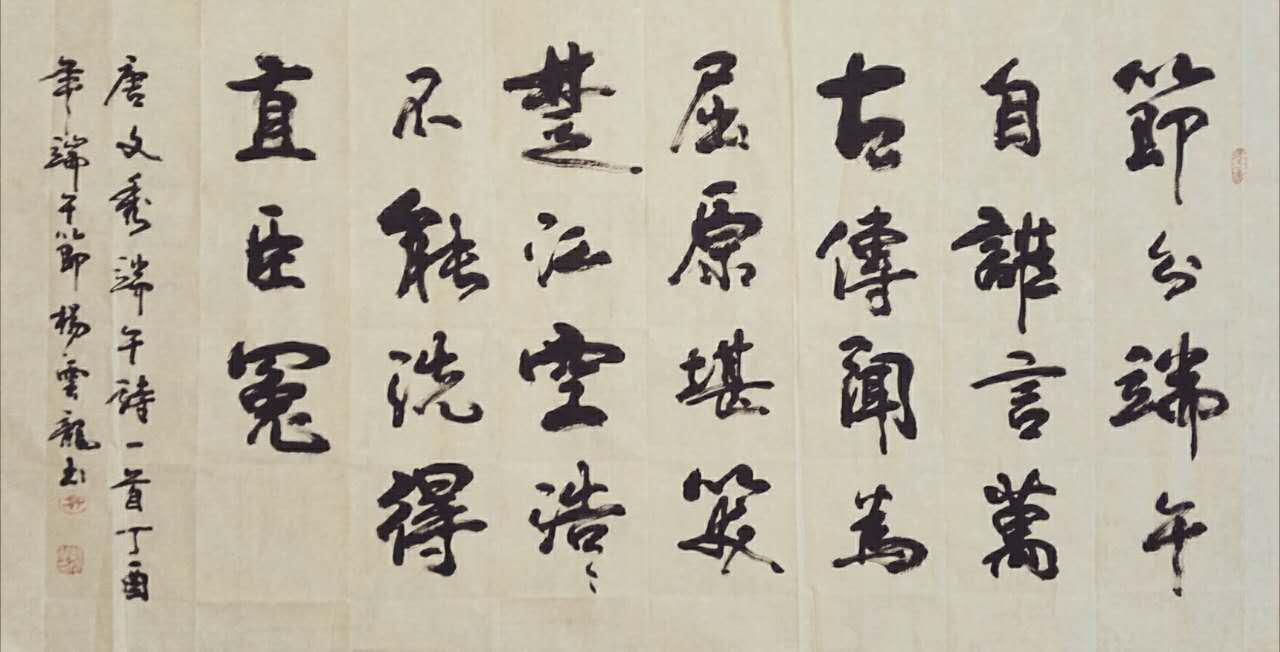 節分端午
自誰言萬
古傳聞為
屈原堪笑
楚江空浩々
不能洗得
直臣冤
唐文秀端午詩一首丁酉
年端午節楊雲龍书